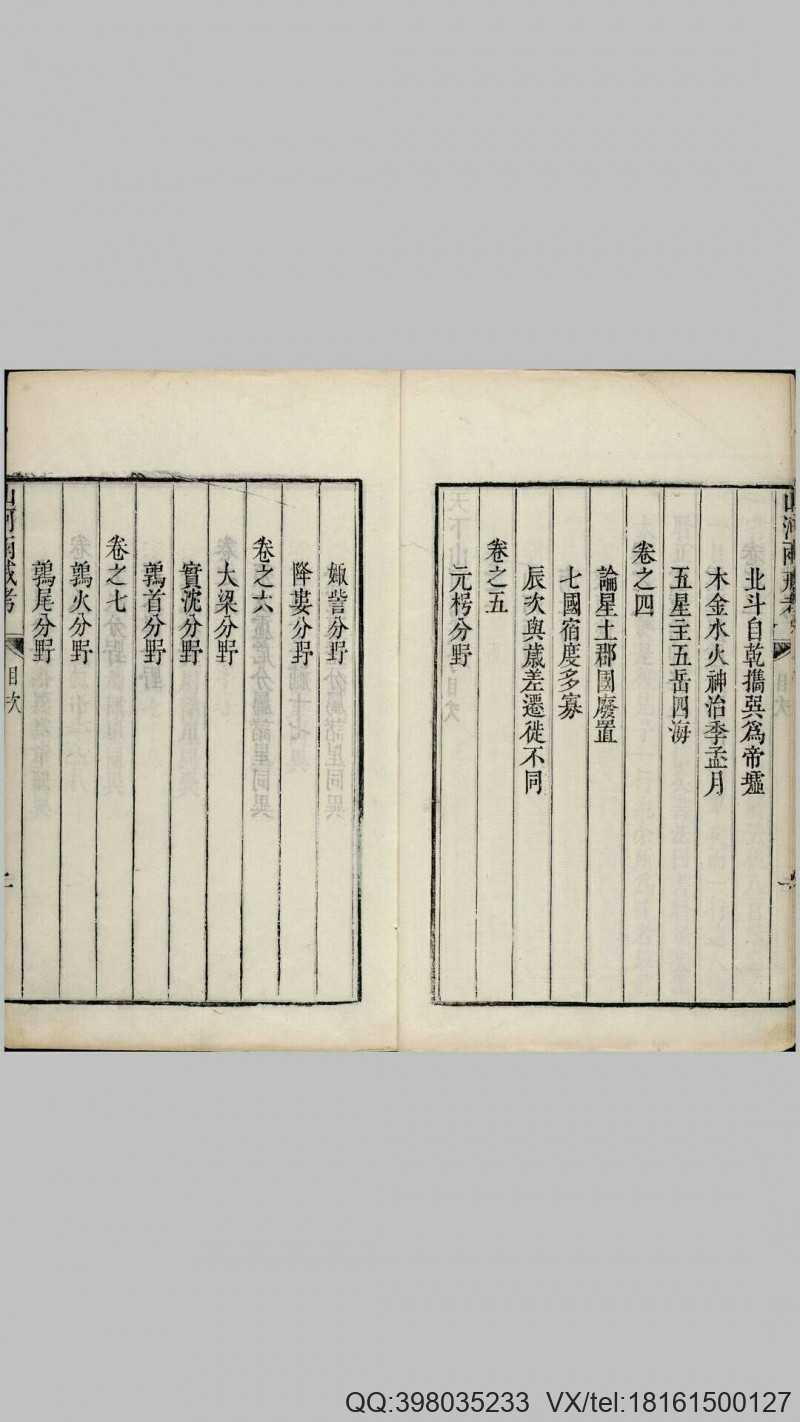 山河兩戒考
目次
北斗自乾攜巽爲帝墟
木金水火神治季孟月
五星主五岳四海
卷之四
論星土郡國廢置
七國宿度多寡
辰次與歲差遷徙不同
卷之五
元枵分野
娵訾分野
降婁分野
卷之六
大梁分野
實沈分野
鶉首分野
卷之七
鶉火分野
鶉尾分野
山河兩戒考
目次
二
QQ:398035233 VX/tel:18161500127